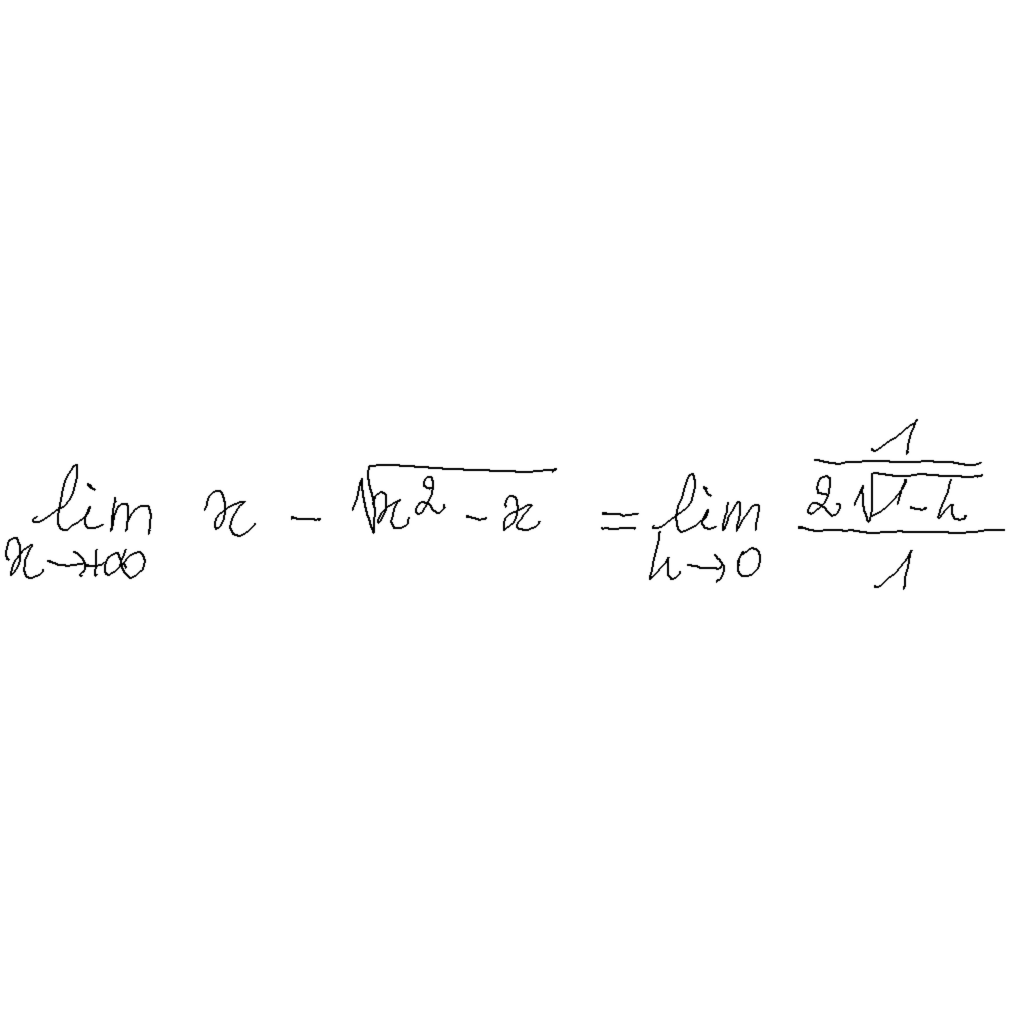 $\lim_{x \to +\infty} x - \sqrt{x^2 - x} = \lim_{h \to 0} \frac{\frac{1}{2\sqrt{1-h}}}{1}$